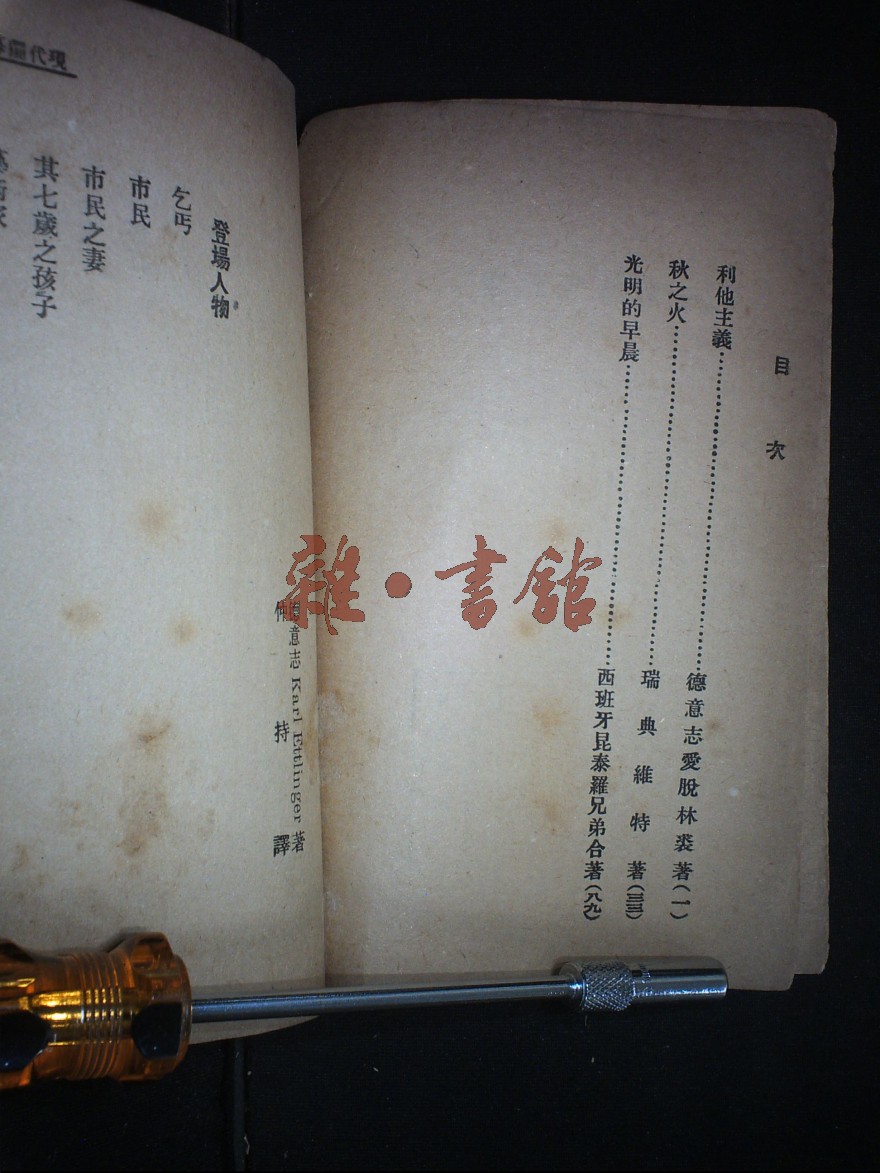 目次
利他主義……德意志愛脫林裘著(一)
秋之火……瑞典維特著(三三)
光明的早晨……西班牙昆泰羅兄弟合著(八九)
現代獨幕
德意志 Karl Ettlinger 著
仲持譯
登場人物
乞丐
市民
市民之妻
其七歲之孩子
藝術家
雜·書館